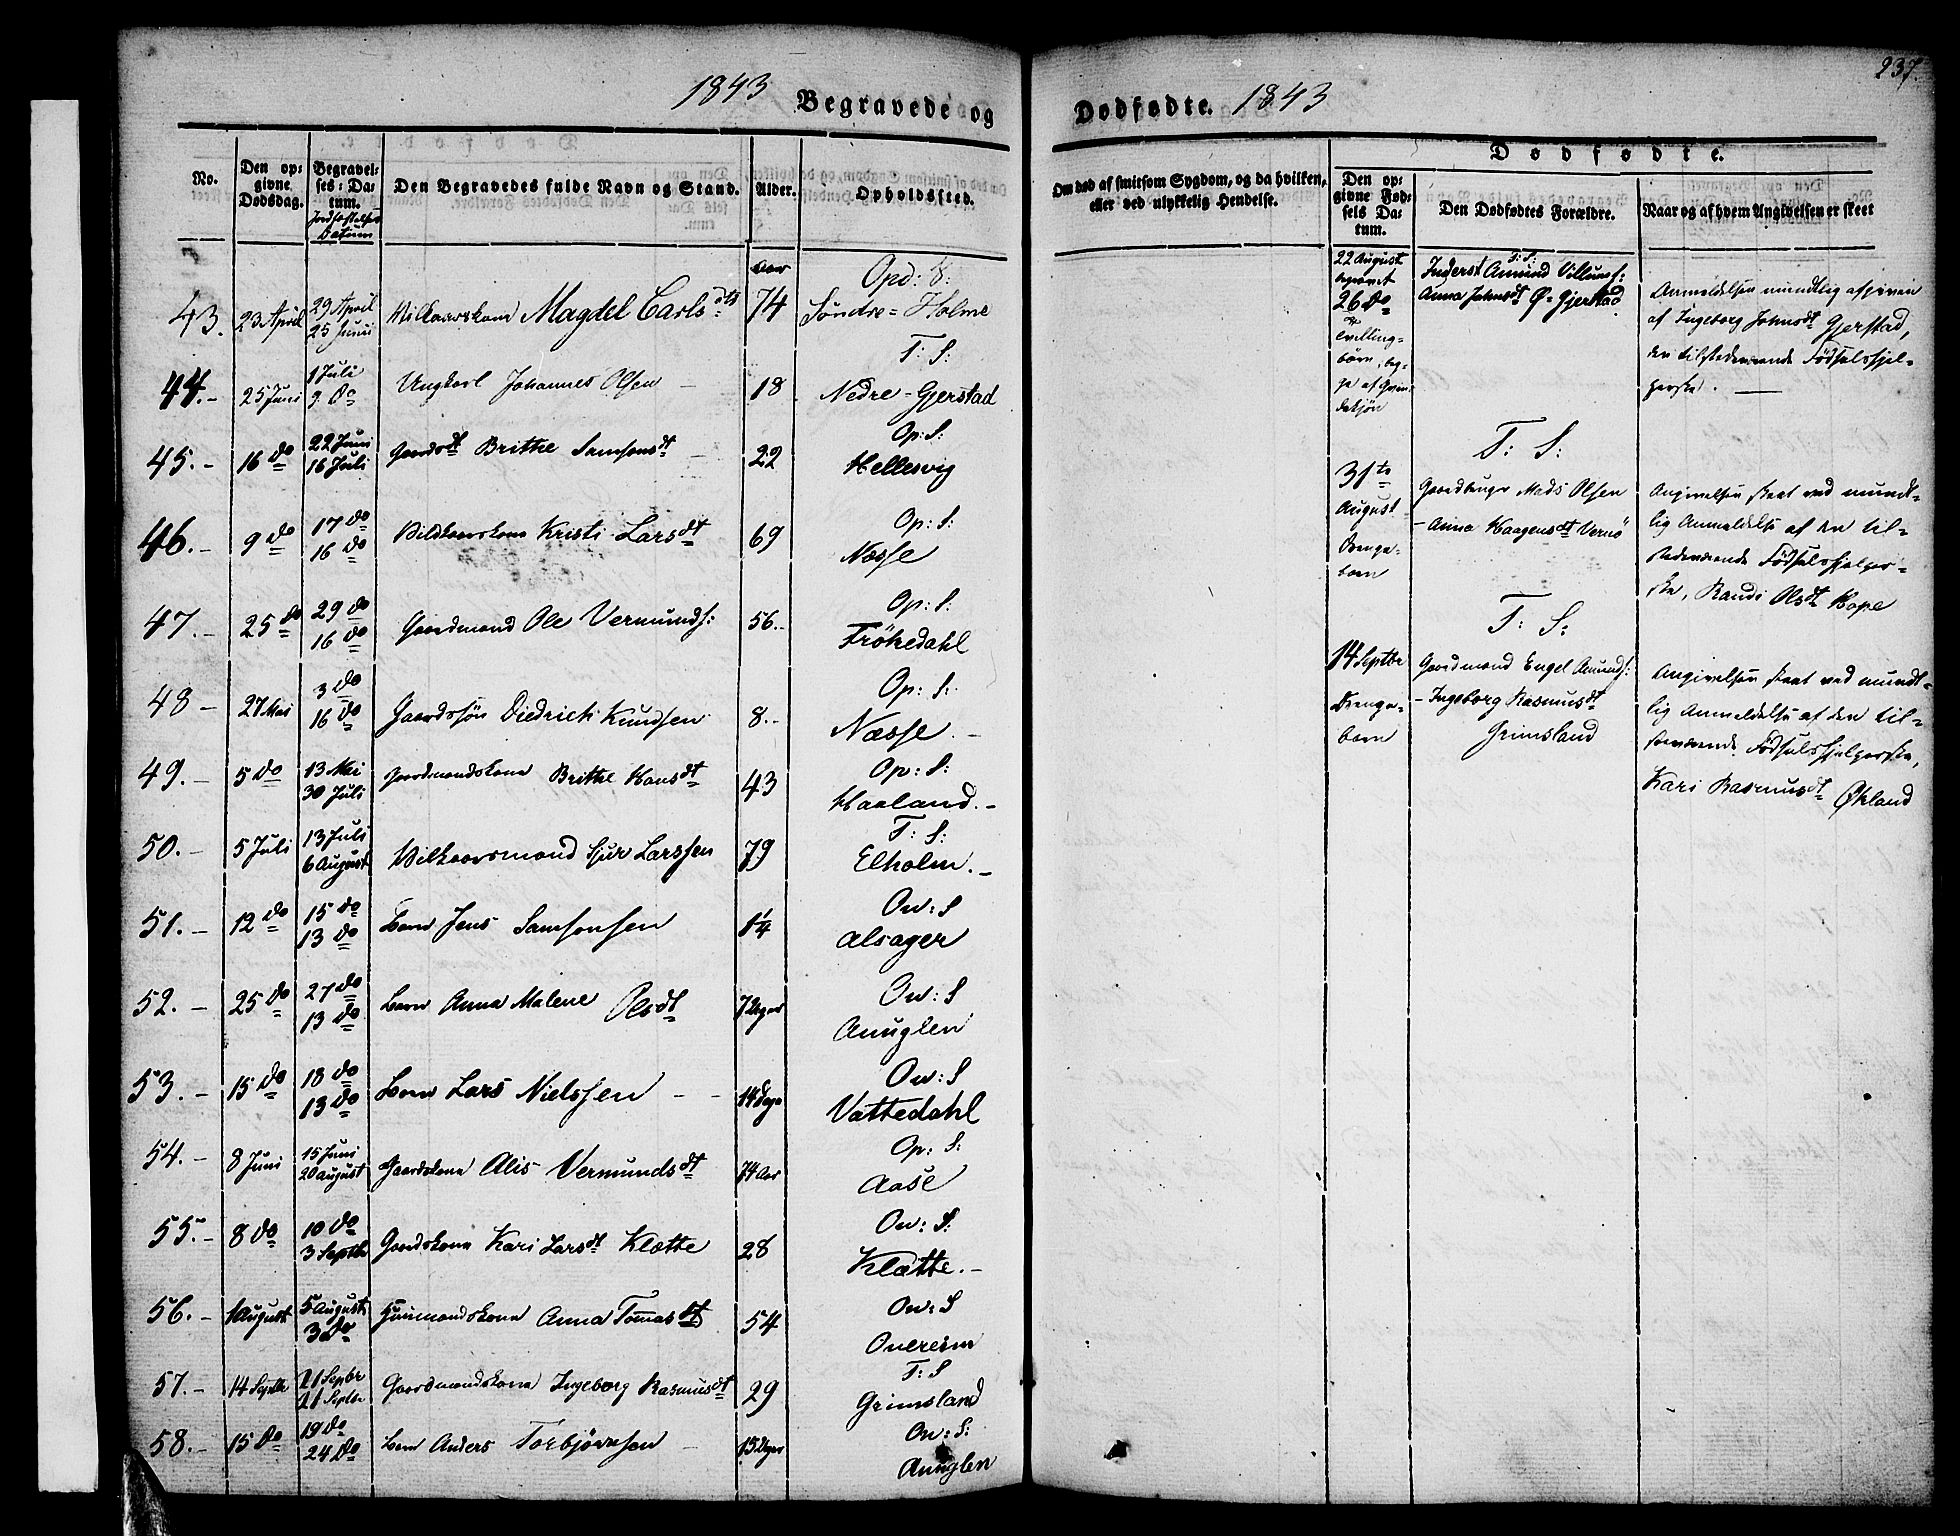 1843 Begravede og
No. Den opgivne Dødsdag. Begravelses-Datum. Jordfæstelses Datum Den Begravedes fulde Navn og Stand. Alder. Opholdssted.
Aar Opd: S:
43. 23 April 29 April 25 Juni Vilkaarskone Magdel Carlsdtr 74 Søndre-Holme
T: S:
44.- 25 Juni 1 Juli 9 Do Ungkarl Johannes Olsen - 18 Nedre-Gjerstad
Op: S:
45.- 16 do 22 Juni 16 Juli Gaardsdt Brithe Samsonsdt - 22 Hellesvig
Op: S:
46.- 9 do 17 do 16 do Vilkaarskone Kristi Larsdt 69 Næsse
Op: S:
47.- 25 do 29 do 16 do Gaardmand Ole Vermunds: 56.- Frökedahl
Op: S:
48 - 27 Mai 3 do 16 do Gaardssön Diedrich Knudsen 8.- Næsse. -
Op: S:
49.- 5 do 13 Mai 30 Juli Gaardmandskone Brithe Hansdt 43 Haaland.-
T: S:
50.- 5 Juli 13 Juli 6 August Vilkaarsmand Sjur Larssen 79 Elholm.-
Ow: S
51.- 12 do 15 do 13 do Barn Jens Samsonsen 1¼ Alsager
Ow: S
52.- 25 do 27 do 13 do Barn Anna Malene Olsdt 7 Uger Anuglen
Ow: S
53.- 15 do 18 do 13 do Barn Lars Nielssen - - 14 Dage Vattedahl
Op: S:
54.- 8 Juni 15 Juni 20 August Gaardskone Alis Vermundsdt 74 Aar Aase
Ow: S:
55.- 8 do 10 do 3 Septbr Gaardskone Kari Larsdt Klætte 28 Klætte.-
Ow: S
56.- 1 August 5 August 3 do Huusmandskone Anna Tomasdt 54 Overeim
T: S
57.- 14 Septbr 21 Septbr 21 Septbr Gaardmandskone Ingeborg Rasmusdt 29 Grimsland
Ow: S:
58.- 15 Do 19 do 24 Do Barn Anders Torbjörnsen - 15 Dager Anuglen
237.
Dødfødte. 1843
Dødfødte.
Om død af smitsom Sygdom, og da hvilken, eller ved ulykkelig Hendelse. Den opgivne Fødsels Datum. Den Dødfødtes Forældre. Naar og af hvem Angivelsen er skeet
22 August
begravet
26 Do
Tvilling-
börn,
T: S:
Inderst Amund Villums:
Anna Johnsdt Ø-Gjerstad
Anmeldelsen mundtlig afgiven
af Ingeborg Johnsdt Gjerstad,
den tilstedeværende Födselshjel-
perske. -
T: S:
31te
August
Drenge-
barn
Gaardbruger Mads Olsen
- Anna Haagensdt Vernö
Angivelsen skeet ved mundt-
lig Anmeldelse af den til-
stedeværende Födselshjelper-
ske, Randi Olsdt Hope
T: S:
14 Septbr
Drenge-
barn
Gaardmand Engel Amunds:
- Ingeborg Rasmusdt
Grimsland
Angivelsen skeet ved mundt-
lig Anmeldelse af den til-
stedeværende Födselshjelperske,
Kari Rasmusdt Økland